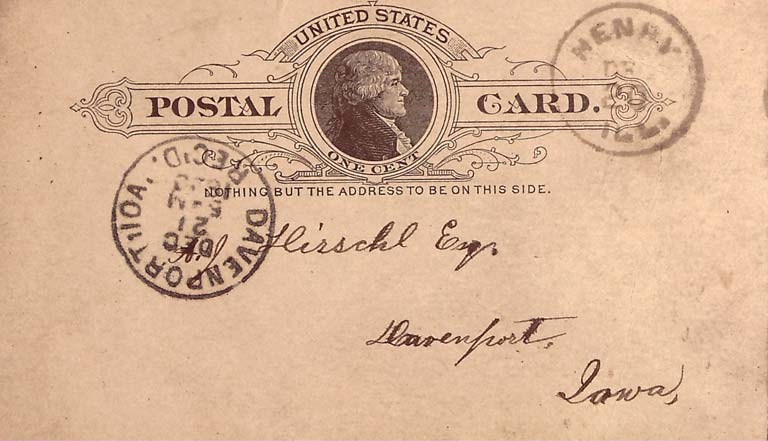 UNITED STATES
POSTAL CARD.
ONE CENT
NOTHING BUT THE ADDRESS TO BE ON THIS SIDE.
HENRY
ILL.
DAVENPORT IOA. REC'D.
DEC
21
Hirschl Esq.
Davenport,
Iowa,